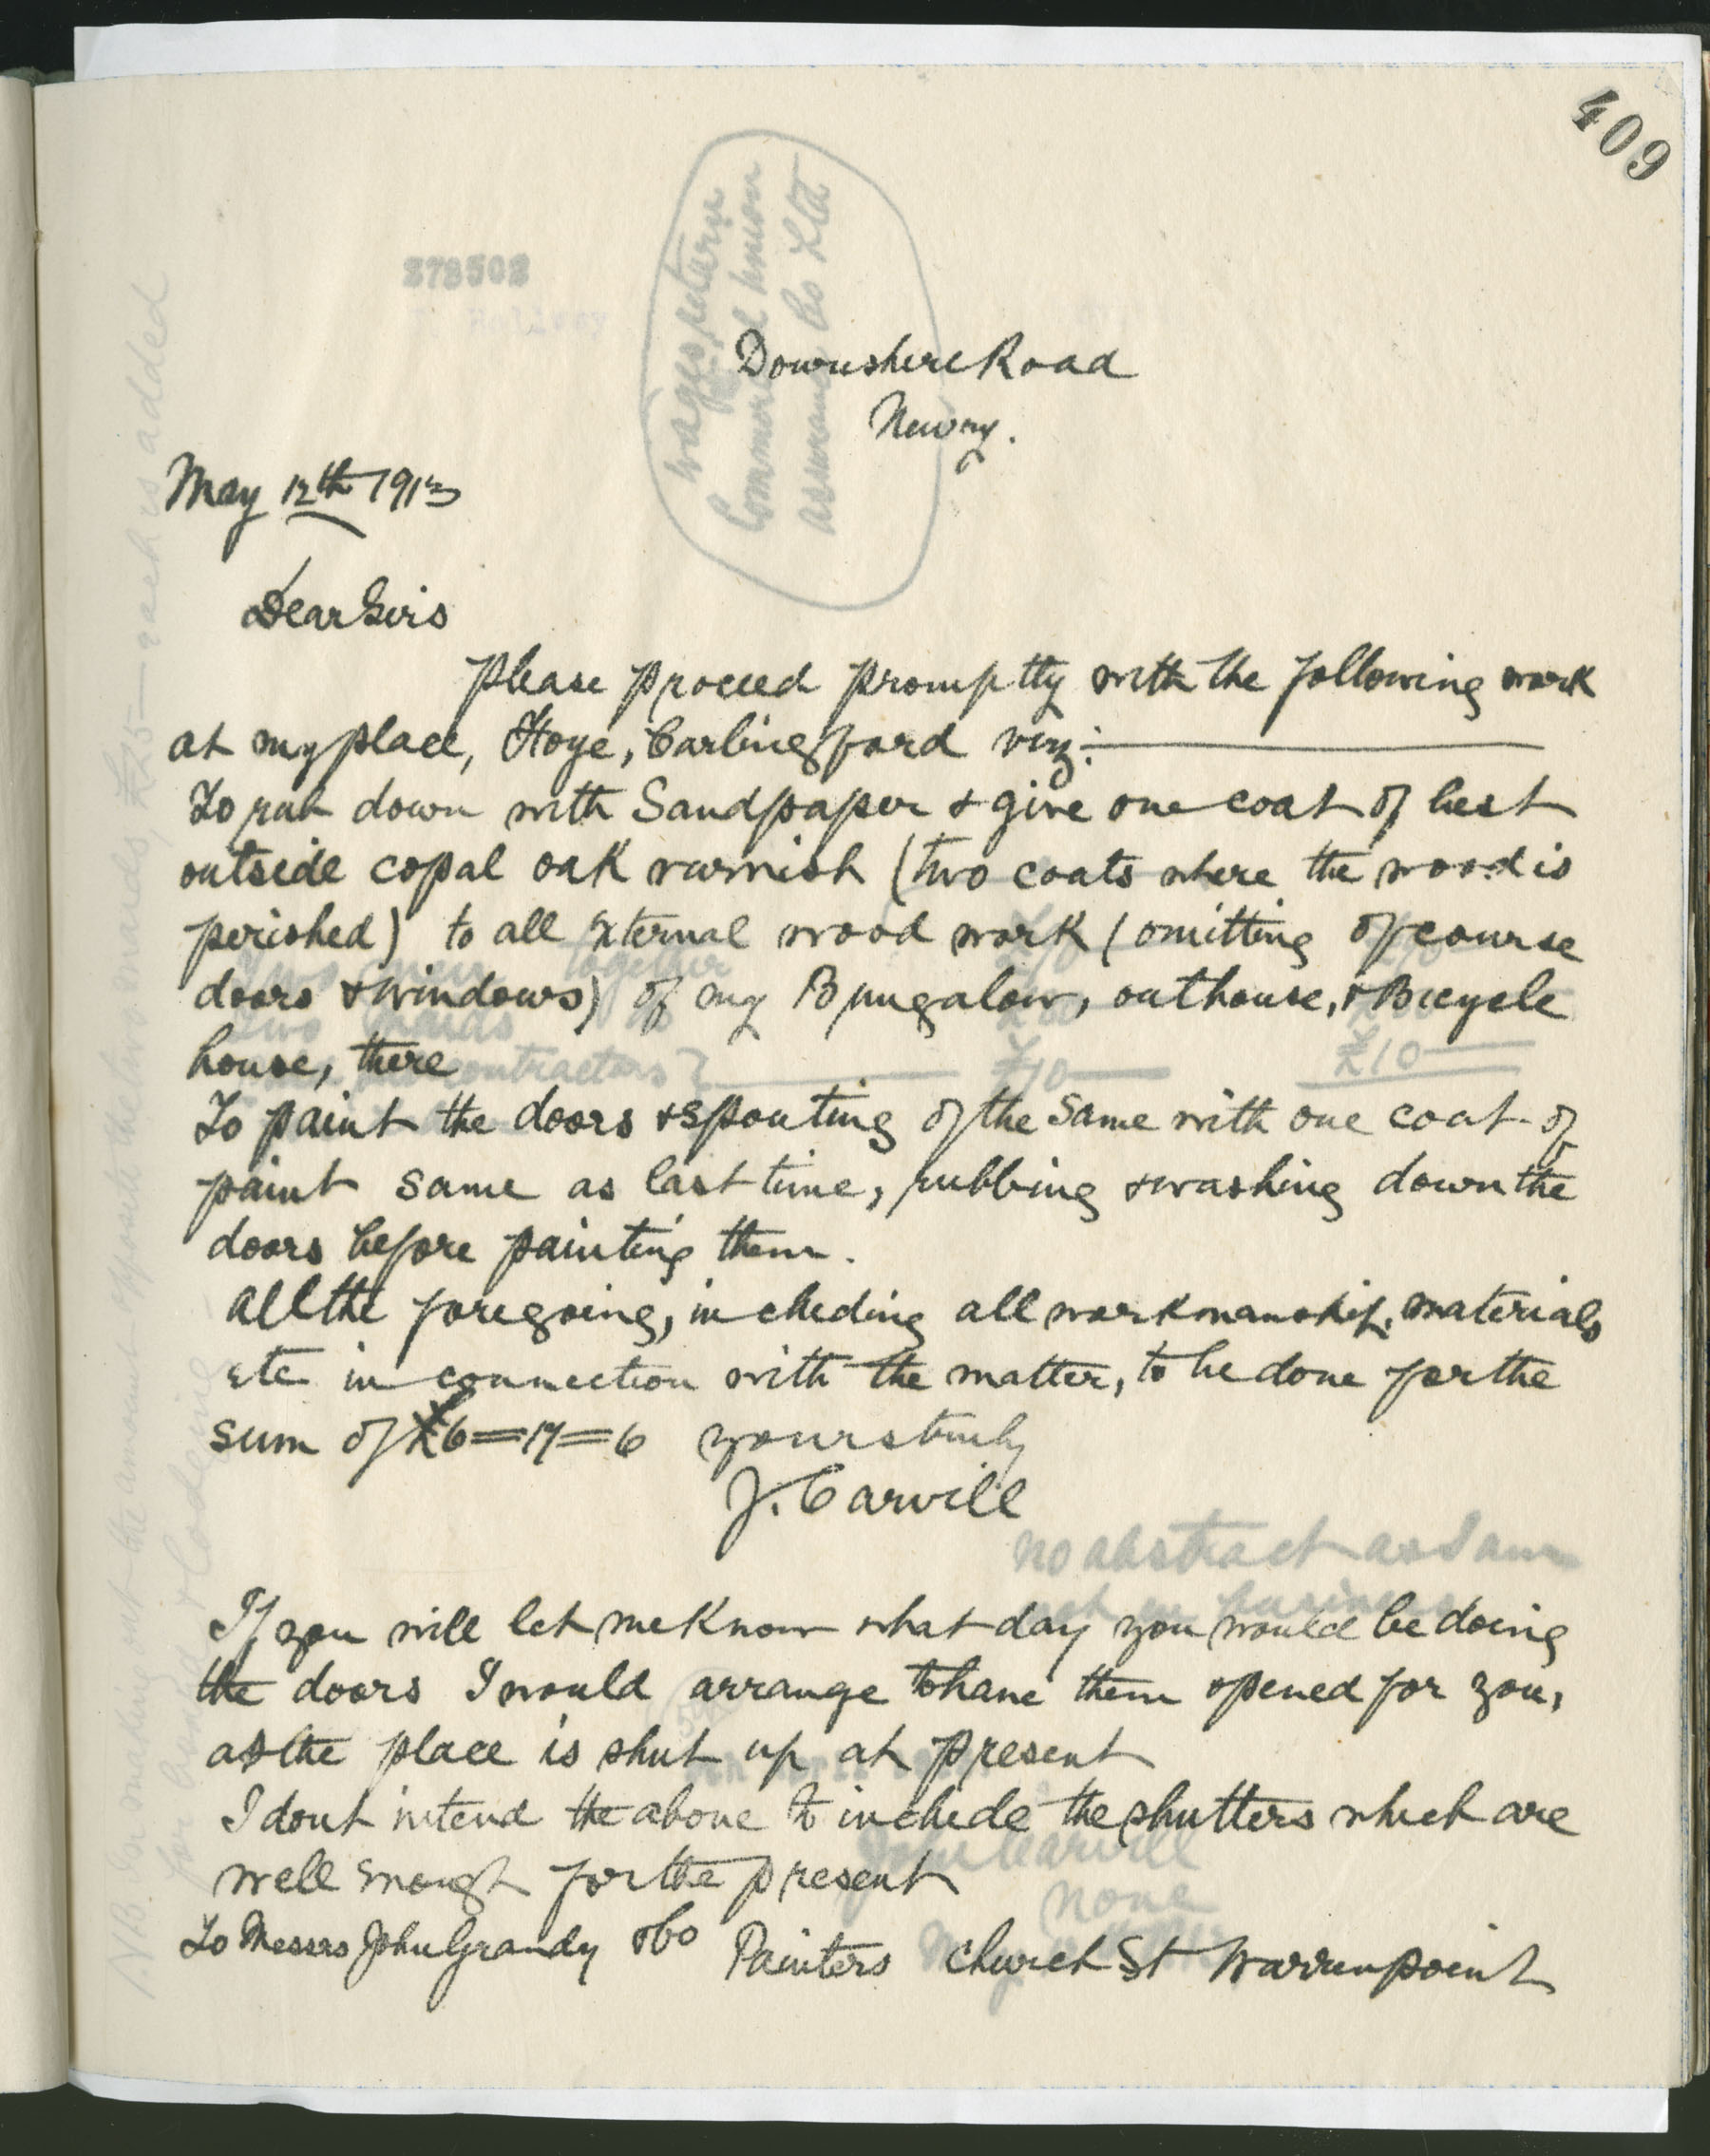 409
278502
wages return
Commercial Union
assurance Co Ltd
Downshire Road
Newry.
May 12th 1913
Dear Sirs
please proceed promptly with the following work
at my place, Hoye, Carlingford viz:
To rub down with Sandpaper & give one coat of best
outside copal oak varnish (two coats where the wood is
perished) to all external wood work (omitting of course
doors & windows) of my Bungalow, outhouse, & Bicycle
house, there
contractors
£10
£10
To paint the doors & spouting of the same with one coat of
paint same as last time, rubbing & washing down the
doors before painting them.
all the foregoing, including all workmanship, materials
etc in connection with the matter, to be done for the
sum of £6=17=6 yours truly
J. Carvill
no abstract as I am
not in business
If you will let me know what day you would be doing
the doors I would arrange to have them opened for you,
as the place is shut up at present
I dont intend the above to include the shutters which are
well enough for the present
John Carvill
none
To Messrs John Grandy & Co Painters Church St Warrenpoint